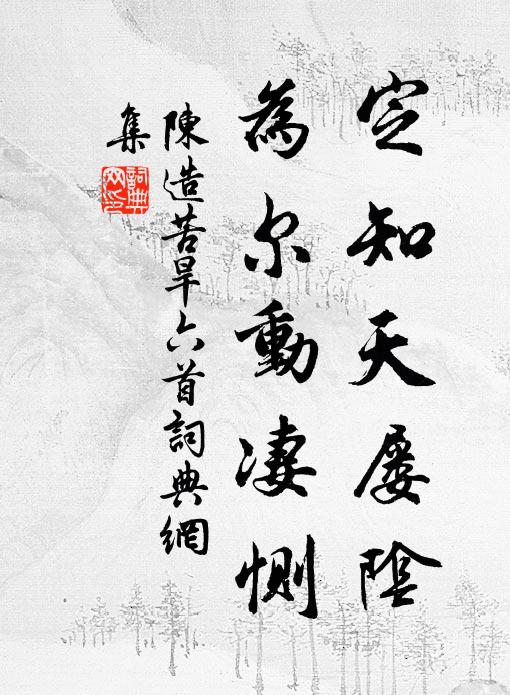 定知天屡陰
為尔動凄惻
陳造苦旱六首詞典網
集
詞典网